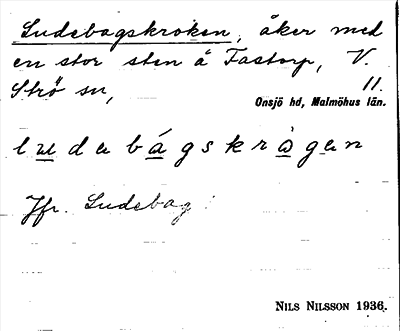 Ludebagskroken, åker med
en stor sten å Fastorp, V.
Strö sn, 11.
Onsjö hd, Malmöhus län.
ludabágskrågen
Jfr. Ludebag
NILS NILSSON 1936.